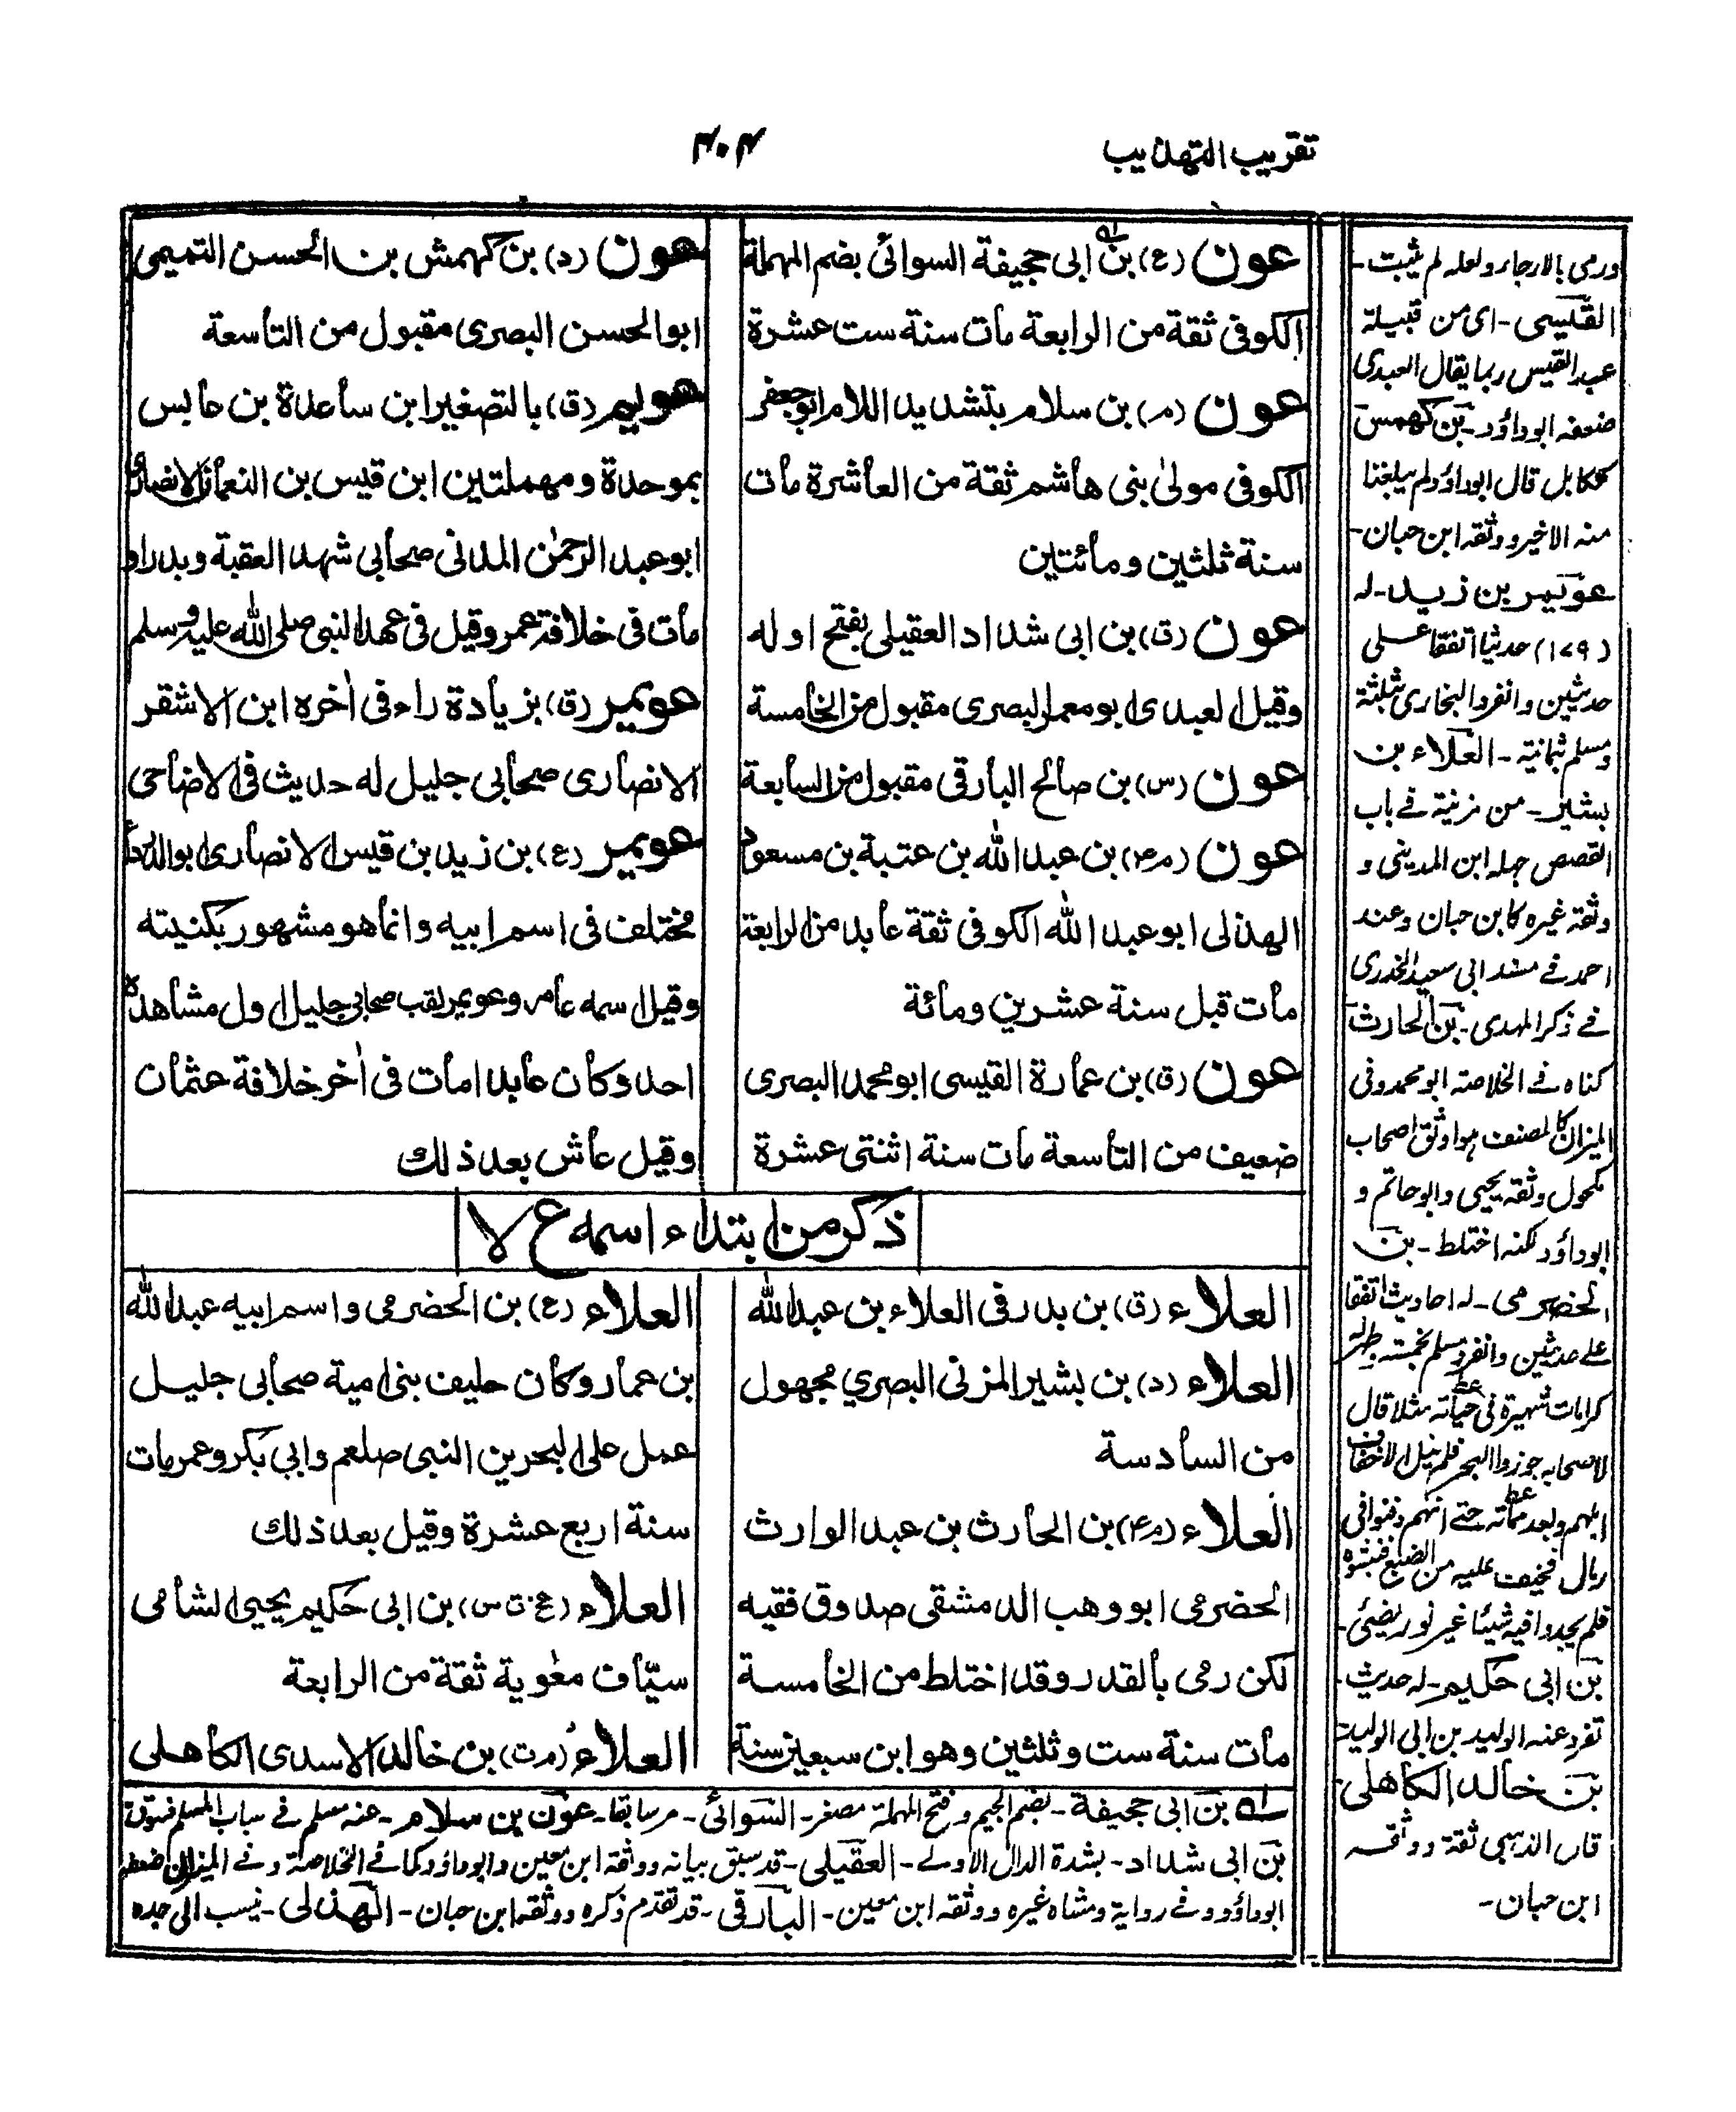 تقريب التهذيب
٣٠٤
عون (ع) بن ابى جحيفة السوائى بضم المهملة
الكوفى ثقة من الرابعة مات سنة ست عشرة
عون (م) بن سلام بتشديد اللام ابوجعفر
الكوفى مولىٰ بنى هاشم ثقة من العاشرة مات
سنة ثلثين ومائتين
عون (ق) بن ابى شداد العقيلى بفتح اوله
وقيل العبدى ابو معمر البصرى مقبول من الخامسة
عون (س) بن صالح البارقى مقبول من السابعة
عون (م٤) بن عبد الله بن عتبة بن مسعود
الهذلى ابو عبد الله الكوفى ثقة عابد من الرابعة
مات قبل سنة عشرين ومائة
عون (ق) بن عمارة القيسى ابو محمد البصرى
ضعيف من التاسعة مات سنة اثنتى عشرة
عون (د) بن كهمش بن الحسن التميمى
ابو الحسن البصرى مقبول من التاسعة
عويم (ق) بالتصغير ابن ساعدة بن عابس
بموحدة ومهملتين ابن قيس بن النعمان الانصارى
ابو عبد الرحمٰن المدنى صحابى شهد العقبة وبدرا و
مات فى خلافة عمر وقيل فى عهد النبى صلى الله عليه وسلم
عويمر (ق) بزيادة راء فى اٰخره ابن الاشقر
الانصارى صحابى جليل له حديث فى الاضاحى
عويمر (ع) بن زيد بن قيس الانصارى ابو الدرداء
مختلف فى اسم ابيه وانما هو مشهور بكنيته
وقيل اسمه عامر وعويمر لقب صحابى جليل اول مشاهده
احد وكان عابدا مات فى اٰخر خلافة عثمان
وقيل عاش بعد ذلك
ذكر من ابتداء اسمه ع لا
العلاء (ق) بن بدر فى العلاء بن عبد الله
العلاء (د) بن بشير المزنى البصري مجهول
من السادسة
العلاء (م٤) بن الحارث بن عبد الوارث
الحضرمى ابو وهب الدمشقى صدوق فقيه
لكن رمى بالقدر وقد اختلط من الخامسة
مات سنة ست وثلثين وهو ابن سبعين سنة
العلاء (ع) بن الحضرمى واسم ابيه عبد الله
بن عمار وكان حليف بنى امية صحابى جليل
عمل على البحرين النبى صلعم وابي بكر وعمر مات
سنة اربع عشرة وقيل بعد ذلك
العلاء (عخ ت س) بن ابى حكيم يحيى الشامى
سيّاف معٰوية ثقة من الرابعة
العلاء (م ت) بن خالد الاسدى الكاهلى
له بن ابى جحيفة - بضم الجيم وفتح المهملة مصغر - السوائى - مر سابقا - عون بن سلام - عنه مسلم فے سباب المسلم فسوق
بن ابى شداد - بشدة الدال الاولے - العقيلى - قد سبق بيانه ووثقه ابن معين وابوداؤد كما فے الخلاصة وفے الميزان ضعفه
ابوداؤد وفے رواية ومشاه غيره ووثقه ابن معين - البارقى - قد تقدم ذكره ووثقه ابن حبان - الهذلى - نيسب الى جده
ورمى بالارجاء ولعله لم يثبت -
القيسى - اى من قبيلة
عبد القيس ربما يقال العبدى
ضعفه ابوداؤد - بن كهمس
قال ابوداؤد لم يبلغنا
منه الا خير ووثقه ابن حبان -
عويمر بن زيد - له
(١٧٩) حديثا اتفقا على
حديثين وانفرد البخارى بثلثة
ومسلم بثمانية - العلاء بن
بشير - من مزنية فے باب
القصص جهله ابن المدينى و
وثقه غيره كابن حبان وعند
احمد فے مسند ابى سعيد الخدرى
فے ذكر المهدى - بن الحارث
كناه فے الخلاصة ابو محمد وفى
الميزان كالمصنف هو اوثق اصحاب
مكحول وثقه يحيى وابو حاتم و
ابوداؤد لكنه اختلط - بن
الحضرمى - له احاديث اتفقا
على حديثين وانفرد مسلم بخمسة وله
كرامات شهيرة فى حياته مثلا قال
لاصحابه جوزوا البحر فلم يبل الا خفاف
ابلهم وبعد مماته حتے انهم دفنوا فى
رمال فخيف عليه من الضبع فنبشوه
فلم يجدوا فيه شيئا غير نور يضئ -
بن ابى حكيم - له حديث
تفرد عنه الوليد بن ابى الوليد
بن خالد الكاهلى
قال الذهبى ثقة ووثقه
ابن حبان -